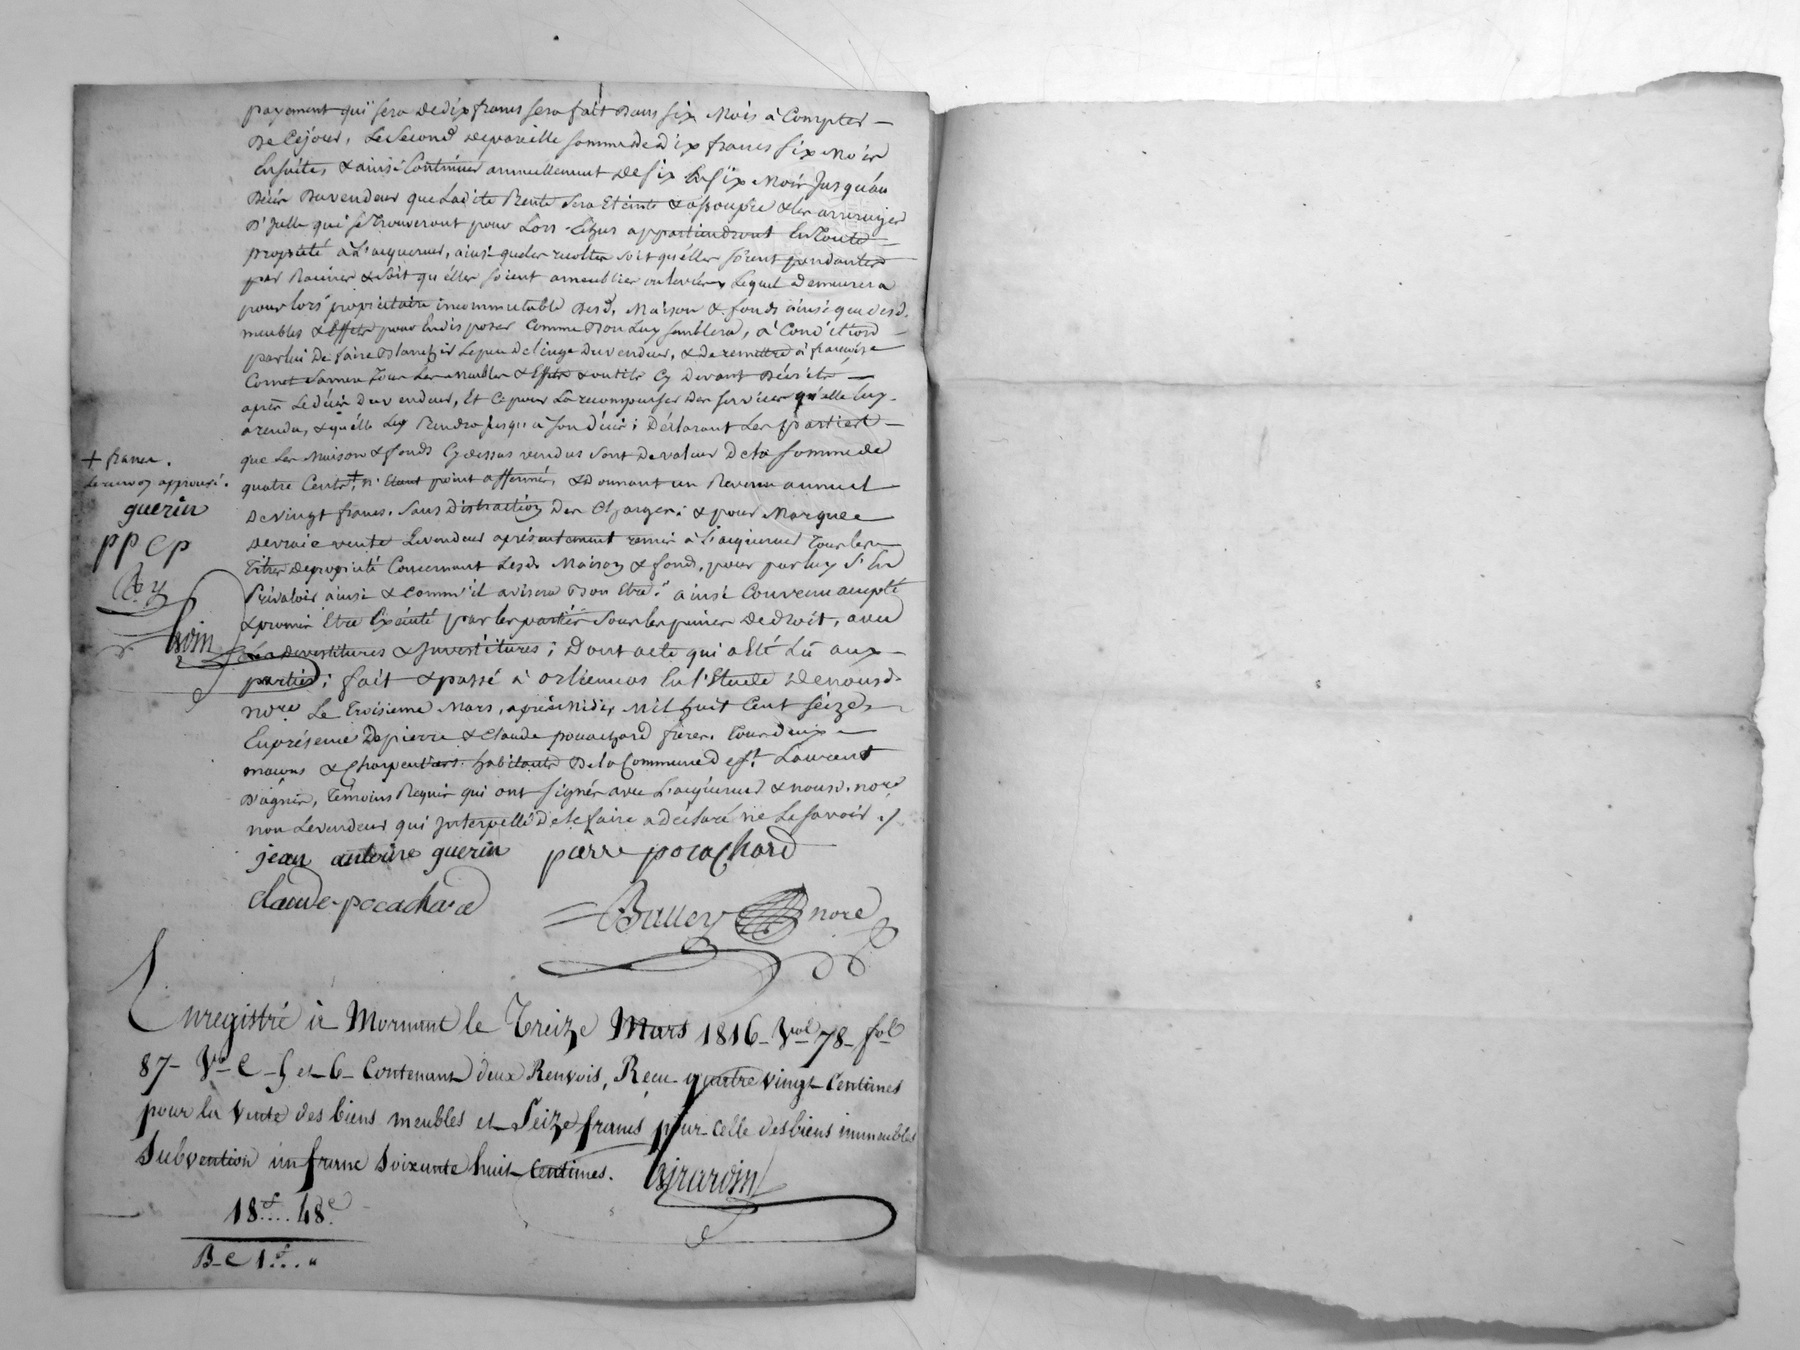 payement qui sera de dix francs sera fait Dans six Mois à Compter
De Ce jour, Le Second de pareille somme de dix francs six Mois
Ensuites & ainsi Continuer annuellement de six En six Mois Jusqu'au
Décès Du vendeur que Ladite Rente sera Eteinte & assoupie & les arrerages
D'Jcelle qui se trouveront pour Lors Echus appartiendront En toute
propriété à L'acquereur, ainsi que les recoltes soit qu'elles soient pendantes
par Racines & soit qu'elles soient ameublies ou levées, Lequel demeurera
pour lors propriétaire incommutable Desd. Maison & fonds ainsi que desd.
meubles & Effets pour En disposer Comme Bon Luy semblera, à Condition
par lui De faire Blanchir Le peu De linge Du vendeur, & de remettre à francoise
Cornet Tous Les meubles & Effets & outils Cy Devant Décrits
après Le décès Du vendeur, Et Ce pour La recompenser Des services qu'elle luy
a rendu, & qu'elle Luy Rendra jusqu'à son décès ; Déclarant Les parties
que Les Maison & fonds Cy dessus vendus sont De valeur De la somme de
quatre Cents + n'Etant point affermés, & Donnant un Revenu annuel
De vingt francs, sans Distraction Des Charges ; & pour Marque
De vraie vente Le vendeur a présentement remis à L'acquereur Tous les
Titres De propriété Concernant Lesd. Maison & fonds, pour par luy S'En
Prévaloir ainsi & comm'il avisera Bon Etre. ainsi Convenu accepté
& promis Etre Exécuté par les parties Sous les peines De droit, avec
Les Devestitures & Jnvestitures ; Dont acte qui a Eté Lû aux
parties ; fait & passé à orliennas En l'Etude De nous d.
nore Le Troisieme Mars, après Midi, Mil huit Cent seize,
En présence De pierre & claude pouachard frères, Tous deux
maçons & Charpentiers habitants De la Commune de st. Laurent
D'agnir, Témoins Requis qui ont signés avec L'acquereur & nous d. nore
non Le vendeur qui Jnterpellé De le faire a déclaré ne Le savoir ./.
+ francs.
Le renvoy approuvé.
guerin
pp Cp
jean antoine guerin pierre pocachard
claude pocachard
Balley nore
Enregistré à Mornant le Treize Mars 1816 Vol 78 fol
87 Vo C 5 et 6 Contenant deux Renvois, Reçu quatre vingt Centimes
pour la Vente des biens meubles et Seize francs pour celle des biens immeubles
Subvention un franc soixante huit Centimes. Girardin
18f.... 48c.
B C 1f... "